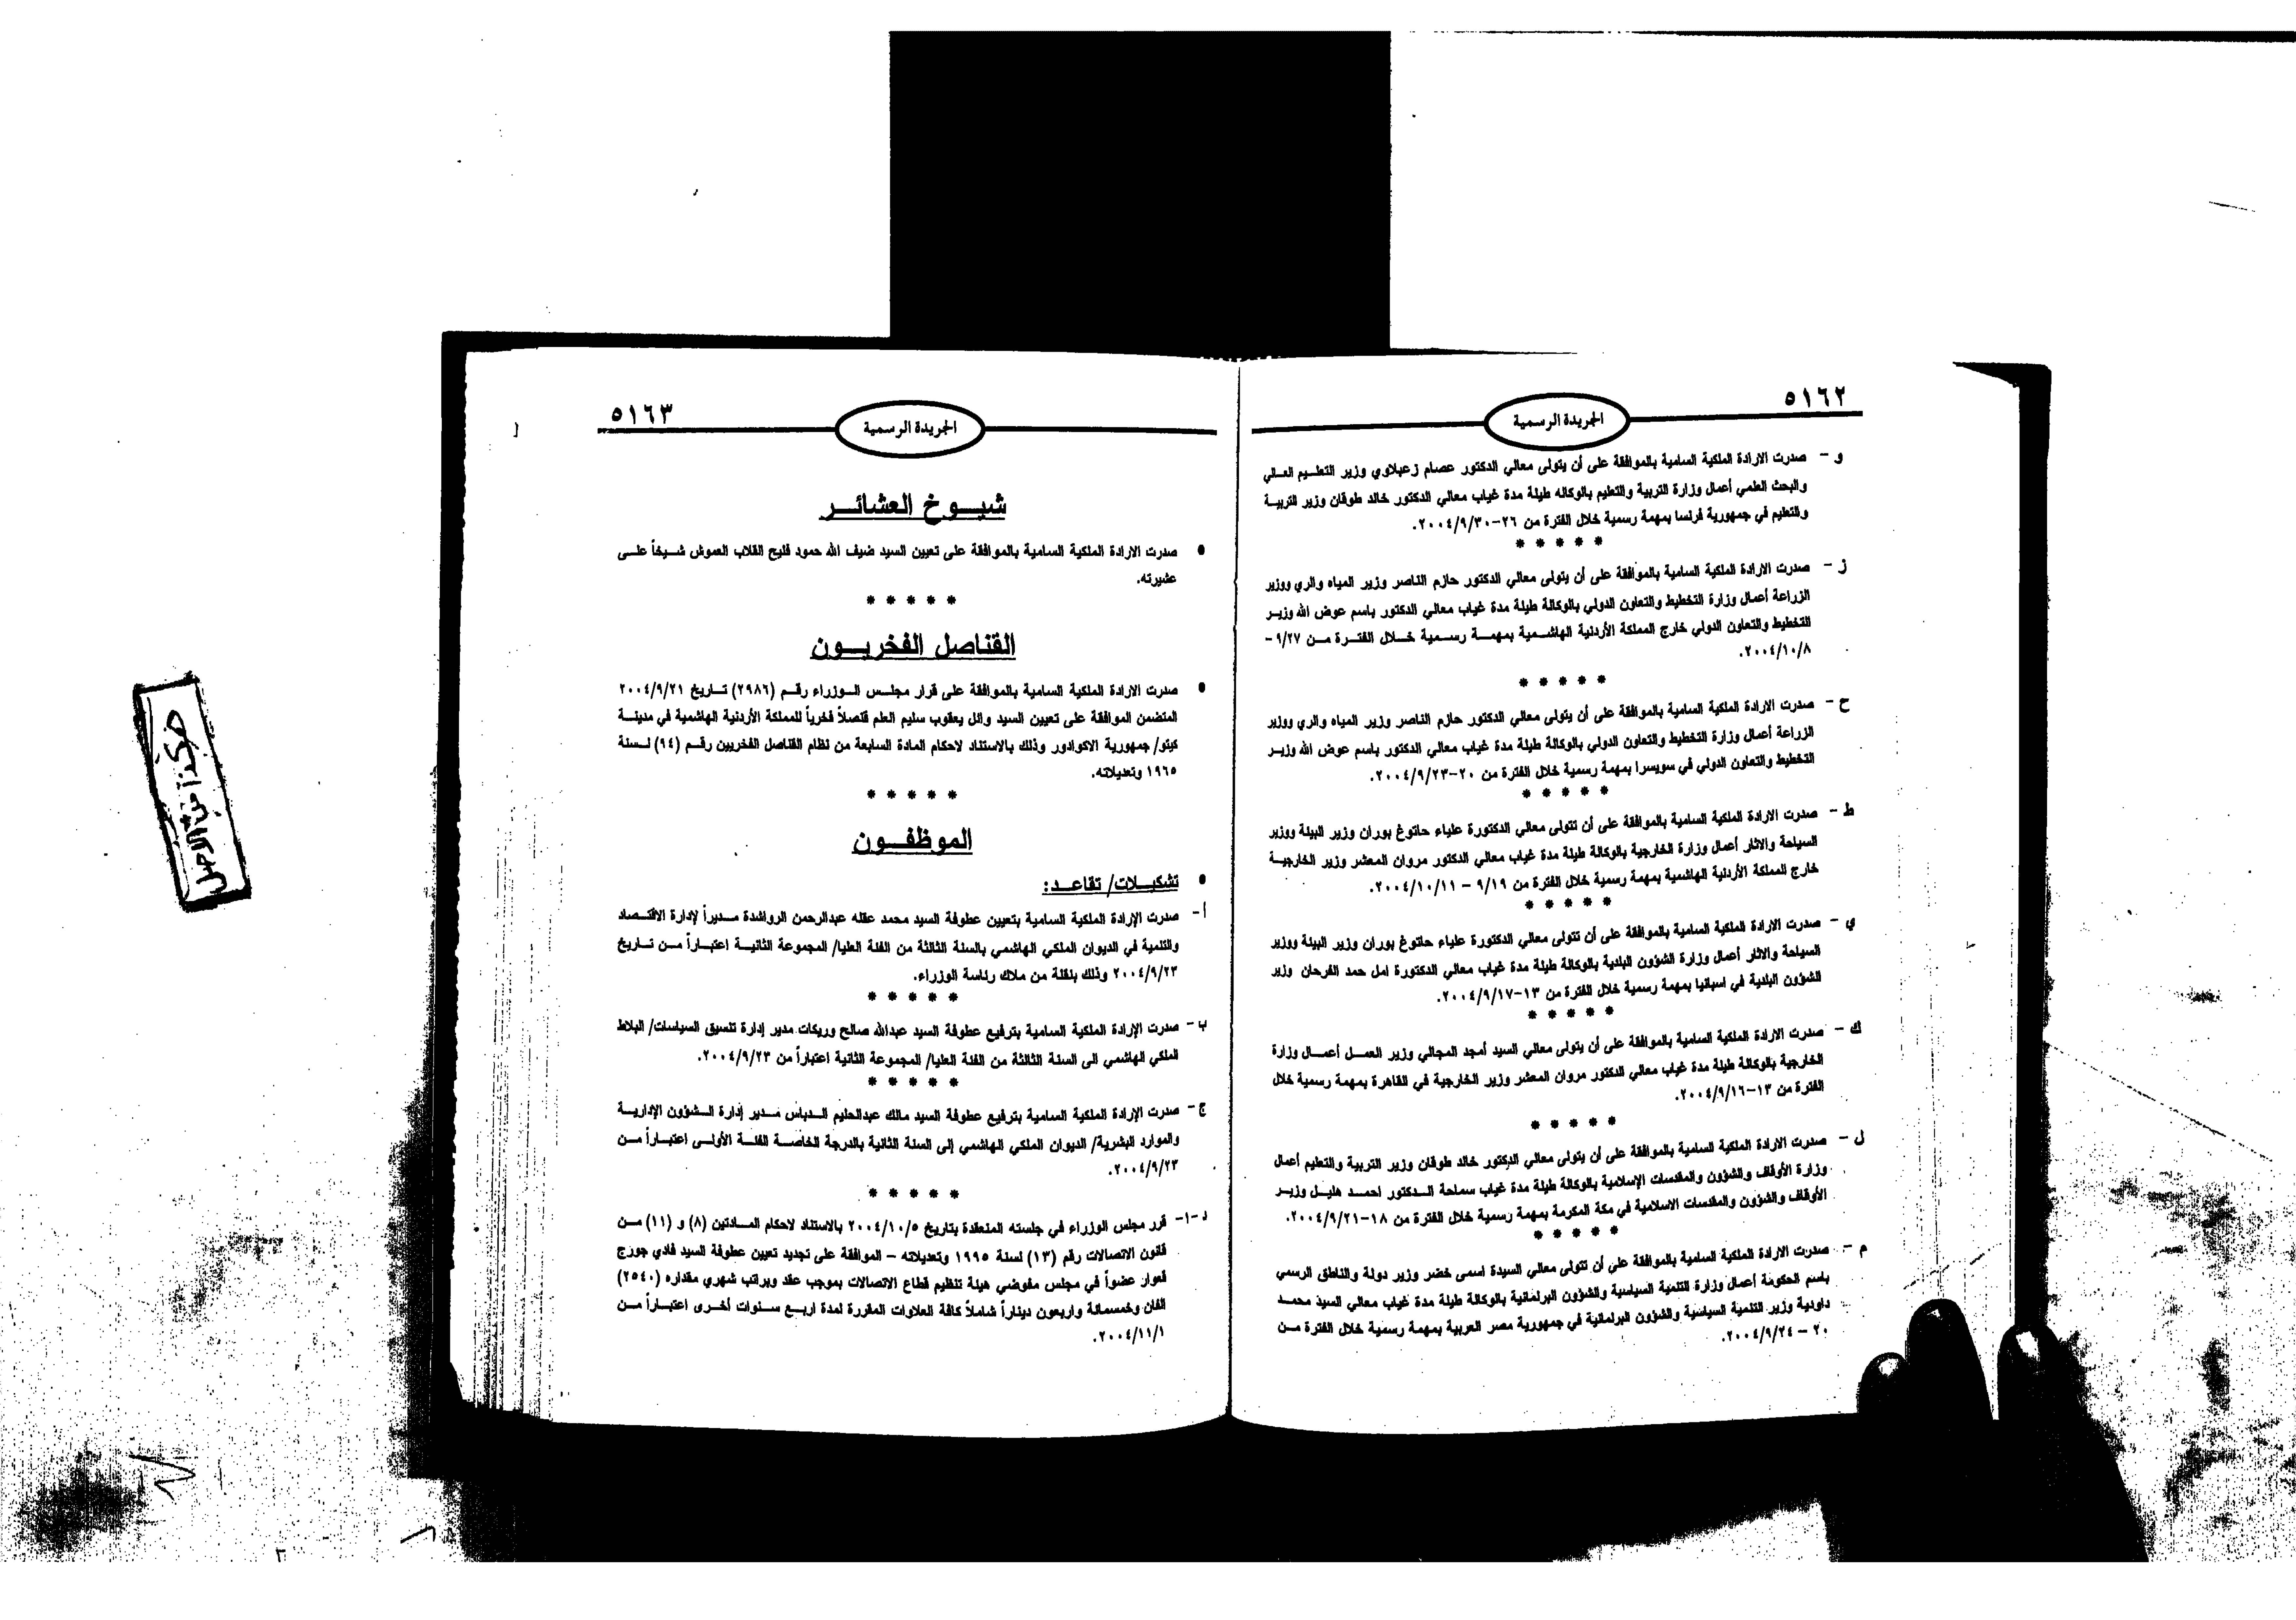 ٥١٦٢
الجريدة الرسمية
و - صدرت الارادة الملكية السامية بالموافقة على أن يتولى معالي الدكتور عصام زعبلاوي وزير التعليم العالي
والبحث العلمي أعمال وزارة التربية والتعليم بالوكاله طيلة مدة غياب معالي الدكتور خالد طوقان وزير التربية
والتعليم في جمهورية فرنسا بمهمة رسمية خلال الفترة من ٢٦-٢٠٠٤/٩/٣٠.
* * * * *
ز - صدرت الارادة الملكية السامية بالموافقة على أن يتولى معالي الدكتور حازم الناصر وزير المياه والري ووزير
الزراعة أعمال وزارة التخطيط والتعاون الدولي بالوكالة طيلة مدة غياب معالي الدكتور باسم عوض الله وزير
التخطيط والتعاون الدولي خارج المملكة الأردنية الهاشمية بمهمة رسمية خلال الفترة من ٩/٢٧ -
٢٠٠٤/١٠/٨.
* * * * *
ح - صدرت الارادة الملكية السامية بالموافقة على أن يتولى معالي الدكتور حازم الناصر وزير المياه والري ووزير
الزراعة أعمال وزارة التخطيط والتعاون الدولي بالوكالة طيلة مدة غياب معالي الدكتور باسم عوض الله وزير
التخطيط والتعاون الدولي في سويسرا بمهمة رسمية خلال الفترة من ٢٠-٢٠٠٤/٩/٢٣.
* * * * *
ط - صدرت الارادة الملكية السامية بالموافقة على أن تتولى معالي الدكتورة علياء حاتوغ بوران وزير البيئة ووزير
السياحة والاثار أعمال وزارة الخارجية بالوكالة طيلة مدة غياب معالي الدكتور مروان المعشر وزير الخارجية
خارج المملكة الأردنية الهاشمية بمهمة رسمية خلال الفترة من ٩/١٩ - ٢٠٠٤/١٠/١١.
* * * * *
ي - صدرت الارادة الملكية السامية بالموافقة على أن تتولى معالي الدكتورة علياء حاتوغ بوران وزير البيئة ووزير
السياحة والاثار أعمال وزارة الشؤون البلدية بالوكالة طيلة مدة غياب معالي الدكتورة امل حمد الفرحان وزير
الشؤون البلدية في اسبانيا بمهمة رسمية خلال الفترة من ١٣-٢٠٠٤/٩/١٧.
* * * * *
ك - صدرت الارادة الملكية السامية بالموافقة على أن يتولى معالي السيد أمجد المجالي وزير العمل أعمال وزارة
الخارجية بالوكالة طيلة مدة غياب معالي الدكتور مروان المعشر وزير الخارجية في القاهرة بمهمة رسمية خلال
الفترة من ١٣-٢٠٠٤/٩/١٦.
* * * * *
ل - صدرت الارادة الملكية السامية بالموافقة على أن يتولى معالي الدكتور خالد طوقان وزير التربية والتعليم أعمال
وزارة الأوقاف والشؤون والمقدسات الإسلامية بالوكالة طيلة مدة غياب سماحة الدكتور احمد هليل وزير
الأوقاف والشؤون والمقدسات الاسلامية في مكة المكرمة بمهمة رسمية خلال الفترة من ١٨-٢٠٠٤/٩/٢١.
* * * * *
م - صدرت الارادة الملكية السامية بالموافقة على أن تتولى معالي السيدة اسمى خضر وزير دولة والناطق الرسمي
باسم الحكومة أعمال وزارة التنمية السياسية والشؤون البرلمانية بالوكالة طيلة مدة غياب معالي السيد محمد
داودية وزير التنمية السياسية والشؤون البرلمانية في جمهورية مصر العربية بمهمة رسمية خلال الفترة من
٢٠ - ٢٠٠٤/٩/٢٤.
٥١٦٣
الجريدة الرسمية
شيوخ العشائر
• صدرت الارادة الملكية السامية بالموافقة على تعيين السيد ضيف الله حمود فليح القلاب العموش شيخاً على
عشيرته.
* * * * *
القناصل الفخريون
• صدرت الارادة الملكية السامية بالموافقة على قرار مجلس الوزراء رقم (٢٩٨٦) تاريخ ٢٠٠٤/٩/٢١
المتضمن الموافقة على تعيين السيد وائل يعقوب سليم العلم قنصلاً فخرياً للمملكة الأردنية الهاشمية في مدينة
كيتو/ جمهورية الاكوادور وذلك بالاستناد لاحكام المادة السابعة من نظام القناصل الفخريين رقم (٩٤) لسنة
١٩٦٥ وتعديلاته.
* * * * *
الموظفون
• تشكيلات/ تقاعد:
أ- صدرت الإرادة الملكية السامية بتعيين عطوفة السيد محمد عقله عبدالرحمن الرواشدة مديراً لإدارة الاقتصاد
والتنمية في الديوان الملكي الهاشمي بالسنة الثالثة من الفئة العليا/ المجموعة الثانية اعتباراً من تاريخ
٢٠٠٤/٩/٢٣ وذلك بنقلة من ملاك رئاسة الوزراء.
* * * * *
ب- صدرت الإرادة الملكية السامية بترفيع عطوفة السيد عبدالله صالح وريكات مدير إدارة تنسيق السياسات/ البلاط
الملكي الهاشمي الى السنة الثالثة من الفئة العليا/ المجموعة الثانية اعتباراً من ٢٠٠٤/٩/٢٣.
* * * * *
ج- صدرت الإرادة الملكية السامية بترفيع عطوفة السيد مالك عبدالحليم الدباس مدير إدارة الشؤون الإدارية
والموارد البشرية/ الديوان الملكي الهاشمي إلى السنة الثانية بالدرجة الخاصة الفئة الأولى اعتباراً من
٢٠٠٤/٩/٢٣.
* * * * *
د -١- قرر مجلس الوزراء في جلسته المنعقدة بتاريخ ٢٠٠٤/١٠/٥ بالاستناد لاحكام المادتين (٨) و (١١) من
قانون الاتصالات رقم (١٣) لسنة ١٩٩٥ وتعديلاته - الموافقة على تجديد تعيين عطوفة السيد فادي جورج
قعوار عضواً في مجلس مفوضي هيئة تنظيم قطاع الاتصالات بموجب عقد وبراتب شهري مقداره (٢٥٤٠)
الفان وخمسمائة واربعون ديناراً شاملاً كافة العلاوات المقررة لمدة اربع سنوات أخرى اعتباراً من
٢٠٠٤/١١/١.